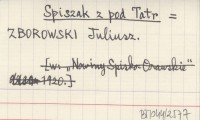 Spiszak z pod Tatr =
ZBOROWSKI Juliusz.
[w: „Nowiny Spisko-Orawskie"
1920.]